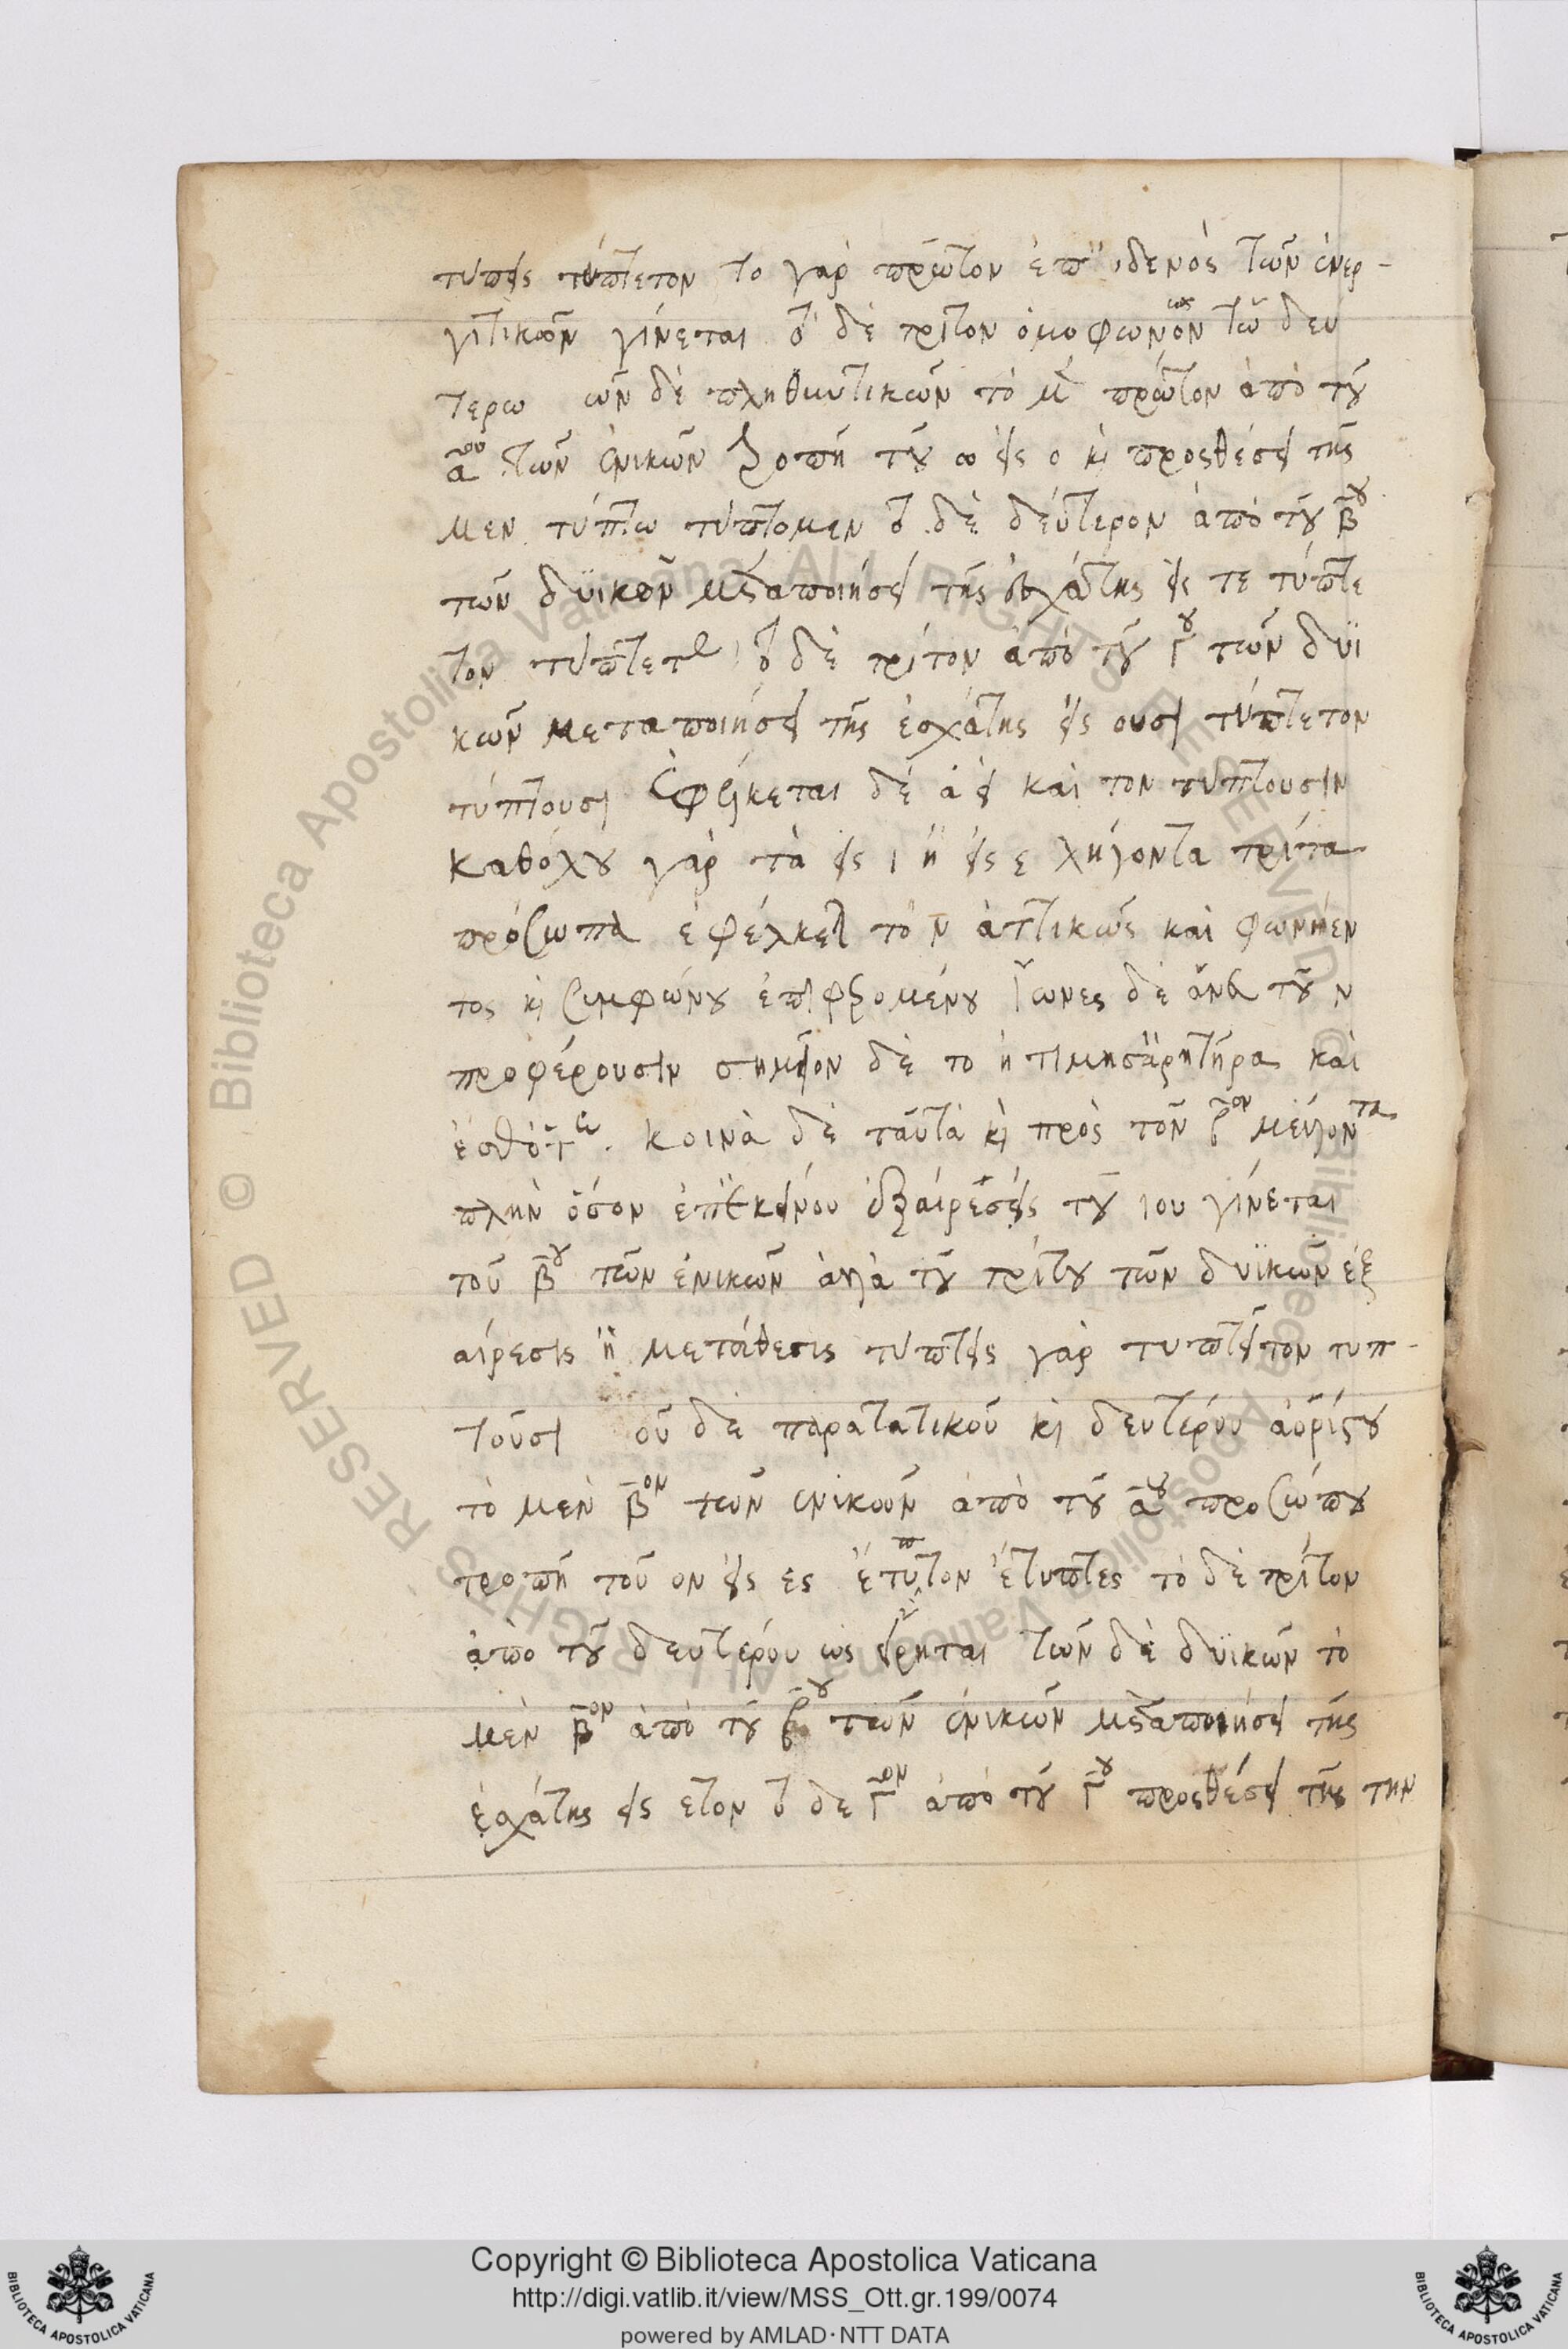 τυπεις τύπτετον το γὰρ πρῶτον ἐπ' οὐδενὸς τῶν ἐνερ-
γιτικῶν γίνεται τὸ δὲ τρίτον ὁμοφωνὸν τῶ δευ
τερω ων δὲ πληθυντικῶν τὸ μὲν πρῶτον ἀπὸ τοῦ
α̅ου τῶν ἐνικῶν τροπῆ τοῦ ω εἰς ο κὶ προσθέσει τῆς
μεν τύπτω τύπτομεν τὸ δὲ δεύτερον ἀπὸ τοῦ β̅ου
τῶν δυϊκῶν μεταποιήσει τῆς ἐσχάτης εἰς τε τύπτε
τον τύπτετε τὸ δὲ τρίτον ἀπὸ τοῦ γ̅ου τῶν δυϊ
κῶν μεταποιήσει τῆς ἐσχάτης εἰς ουσι τύπτετον
τύπτουσι Ἐφέλκεται δὲ ἀεὶ καὶ τον τύπτουσιν
καθόλου γὰρ τὰ εἰς ι ἢ εἰς ε λήγοντα τρίτα
πρόσωπα ἐφέλκεται τὸ ν ἀττικῶς καὶ φωνήεν
τος κὶ συμφώνου ἐπιφερομένου ἴωνες δὲ ἄνευ τοῦ ν
προφέρουσιν σημεῖον δὲ το ἠτίμησ' ἀρητῆρα καὶ
κοινὰ δὲ ταῦτα κὶ πρὸς τὸν β̅ον μέλλοντα
πλὴν ὅσον ἐπ' ἐκείνου ἐξαίρεσις τοῦ ι ου γίνεται
τοῦ β̅ου τῶν ἐνικῶν ἀλλὰ τοῦ τρίτου τῶν δυϊκῶν ἐξ
αίρεσις ἢ μετάθεσις τυπτεῖς γὰρ τυπτεῖτον τυπ-
τοῦσι οῦ δὲ παρατατικοῦ κὶ δευτέρου ἀορίστου
τὸ μὲν β̅ον τῶν ἐνικῶν ἀπὸ τοῦ α̅ου προσώπου
τροπῆ τοῦ ον εἰς ες ἔτυπτον ἔτυπτες τὸ δὲ τρίτον
ἀπὸ τοῦ δευτέρου ὡς εἴρηται τῶν δὲ δυϊκῶν τὸ
μὲν β̅ον ἀπὸ τοῦ β̅ου τῶν ἐνικῶν μεταποιήσει τῆς
ἐσχάτης εἰς ετον τὸ δε γ̅ον ἀπὸ τοῦ γ̅ου προσθέσει τῆς την
Copyright © Biblioteca Apostolica Vaticana
http://digi.vatlib.it/view/MSS_Ott.gr.199/0074
powered by AMLAD·NTT DATA